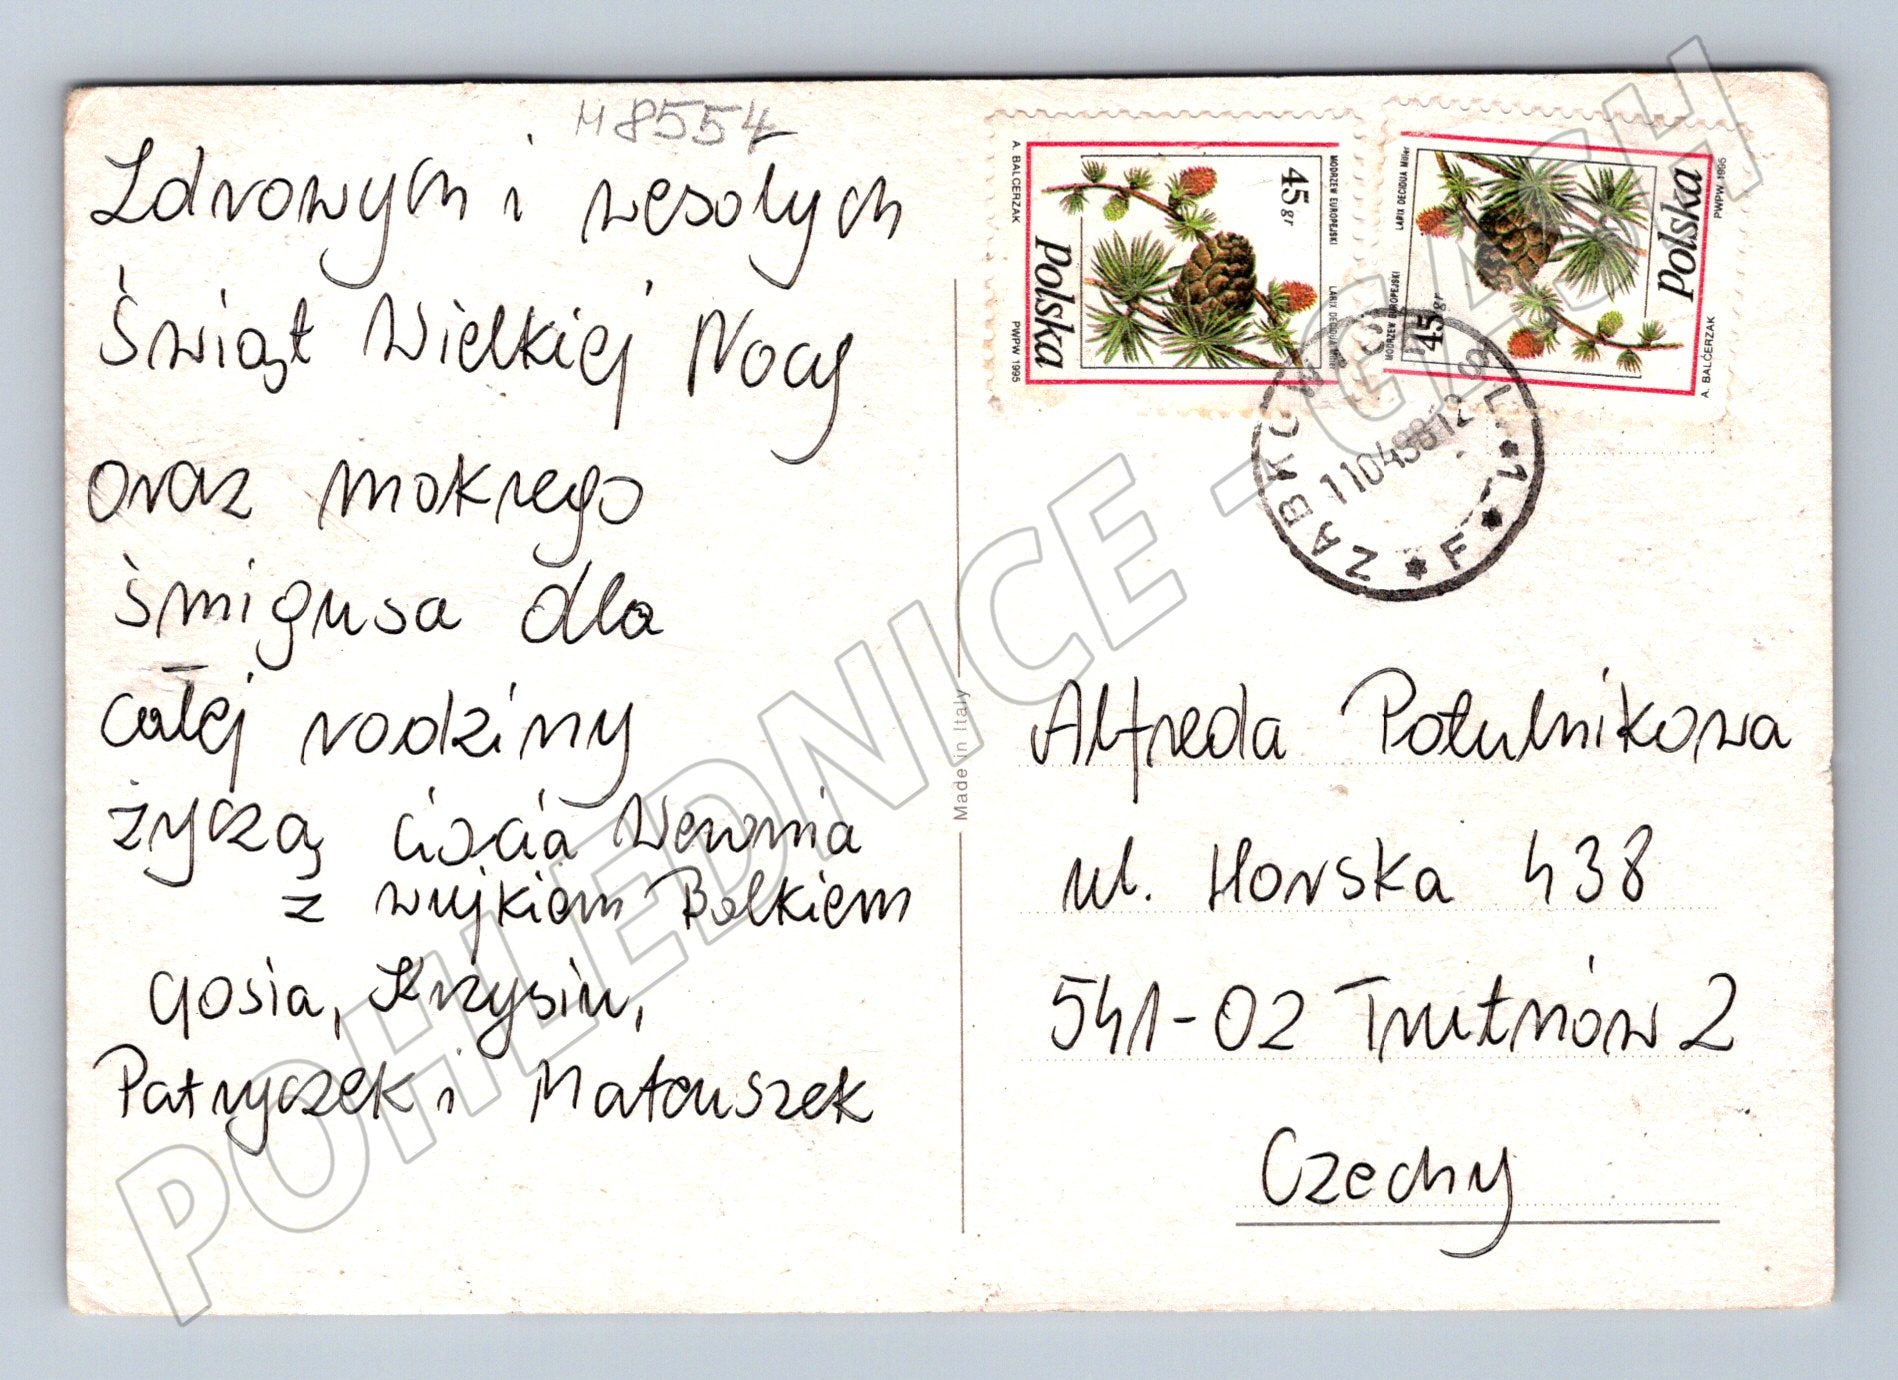 M 8554
Zdrowych i wesołych
Świąt Wielkiej Nocy
oraz mokrego
śmigusa dla
całej rodziny
życzą ciocia Weronia
z wujkiem Bolkiem
Gosia, Krzysiu,
Patryczek i Mateuszek
Made in Italy
A. BALCERZAK
Polska
PWPW 1995
45 gr
MODRZEW EUROPEJSKI
LARIX DECIDUA Miller
LARIX DECIDUA Miller
MODRZEW EUROPEJSKI
45 gr
Polska
PWPW 1995
A. BALCERZAK
ZĄBKOWICE ŚL. 1
F
110498 12
Alfreda Potulnikowa
ul. Horska 438
541-02 Trutnów 2
Czechy
POHLEDNICE - CASH